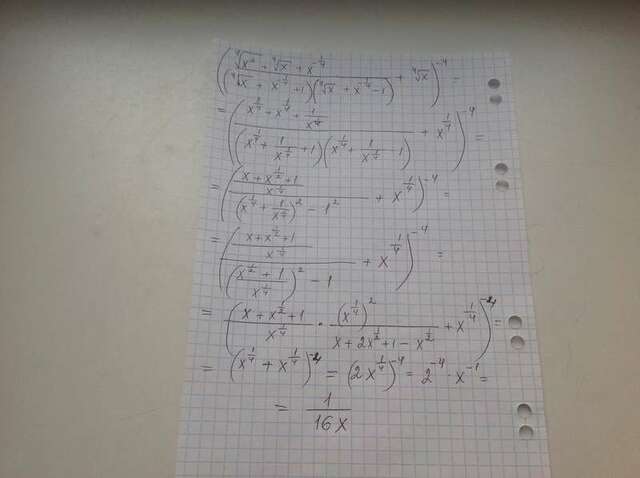 ((⁴√x³ + ⁴√x + x^(-1/4)) / ((⁴√x + x^(-1/4) + 1)(⁴√x + x^(-1/4) - 1)) + ⁴√x)^(-4) =
= ((x^(3/4) + x^(1/4) + 1/x^(1/4)) / ((x^(1/4) + 1/x^(1/4) + 1)(x^(1/4) + 1/x^(1/4) - 1)) + x^(1/4))^(-4) =
= (((x + x^(1/2) + 1)/x^(1/4)) / ((x^(1/4) + 1/x^(1/4))^2 - 1^2) + x^(1/4))^(-4) =
= (((x + x^(1/2) + 1)/x^(1/4)) / (((x^(1/2) + 1)/x^(1/4))^2 - 1) + x^(1/4))^(-4) =
= ((x + x^(1/2) + 1)/x^(1/4) · (x^(1/4))^2/(x + 2x^(1/2) + 1 - x^(1/2)) + x^(1/4))^(-4) =
= (x^(1/4) + x^(1/4))^(-4) = (2x^(1/4))^(-4) = 2^(-4) · x^(-1) =
= 1/(16x)